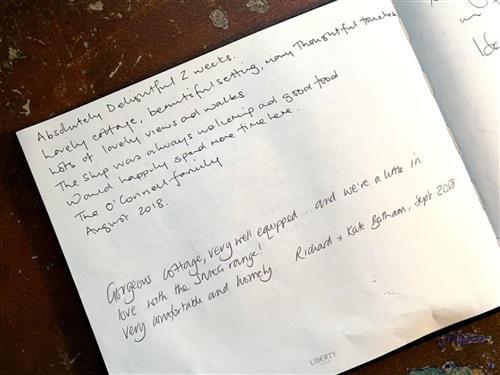 Absolutely Delightful 2 weeks.
Lovely cottage, beautiful setting, many Thoughtful touches
Lots of lovely views ad walks
The Ship was always welcoming ad good food
Would happily spend more time here.
The O'Connell family
August 2018.
Gorgeous cottage, very well equipped... and we're a little in
love with the SMEG range!
very comfortable and homely
Richard & Kate Botham, Sept 2018
LIBERTY